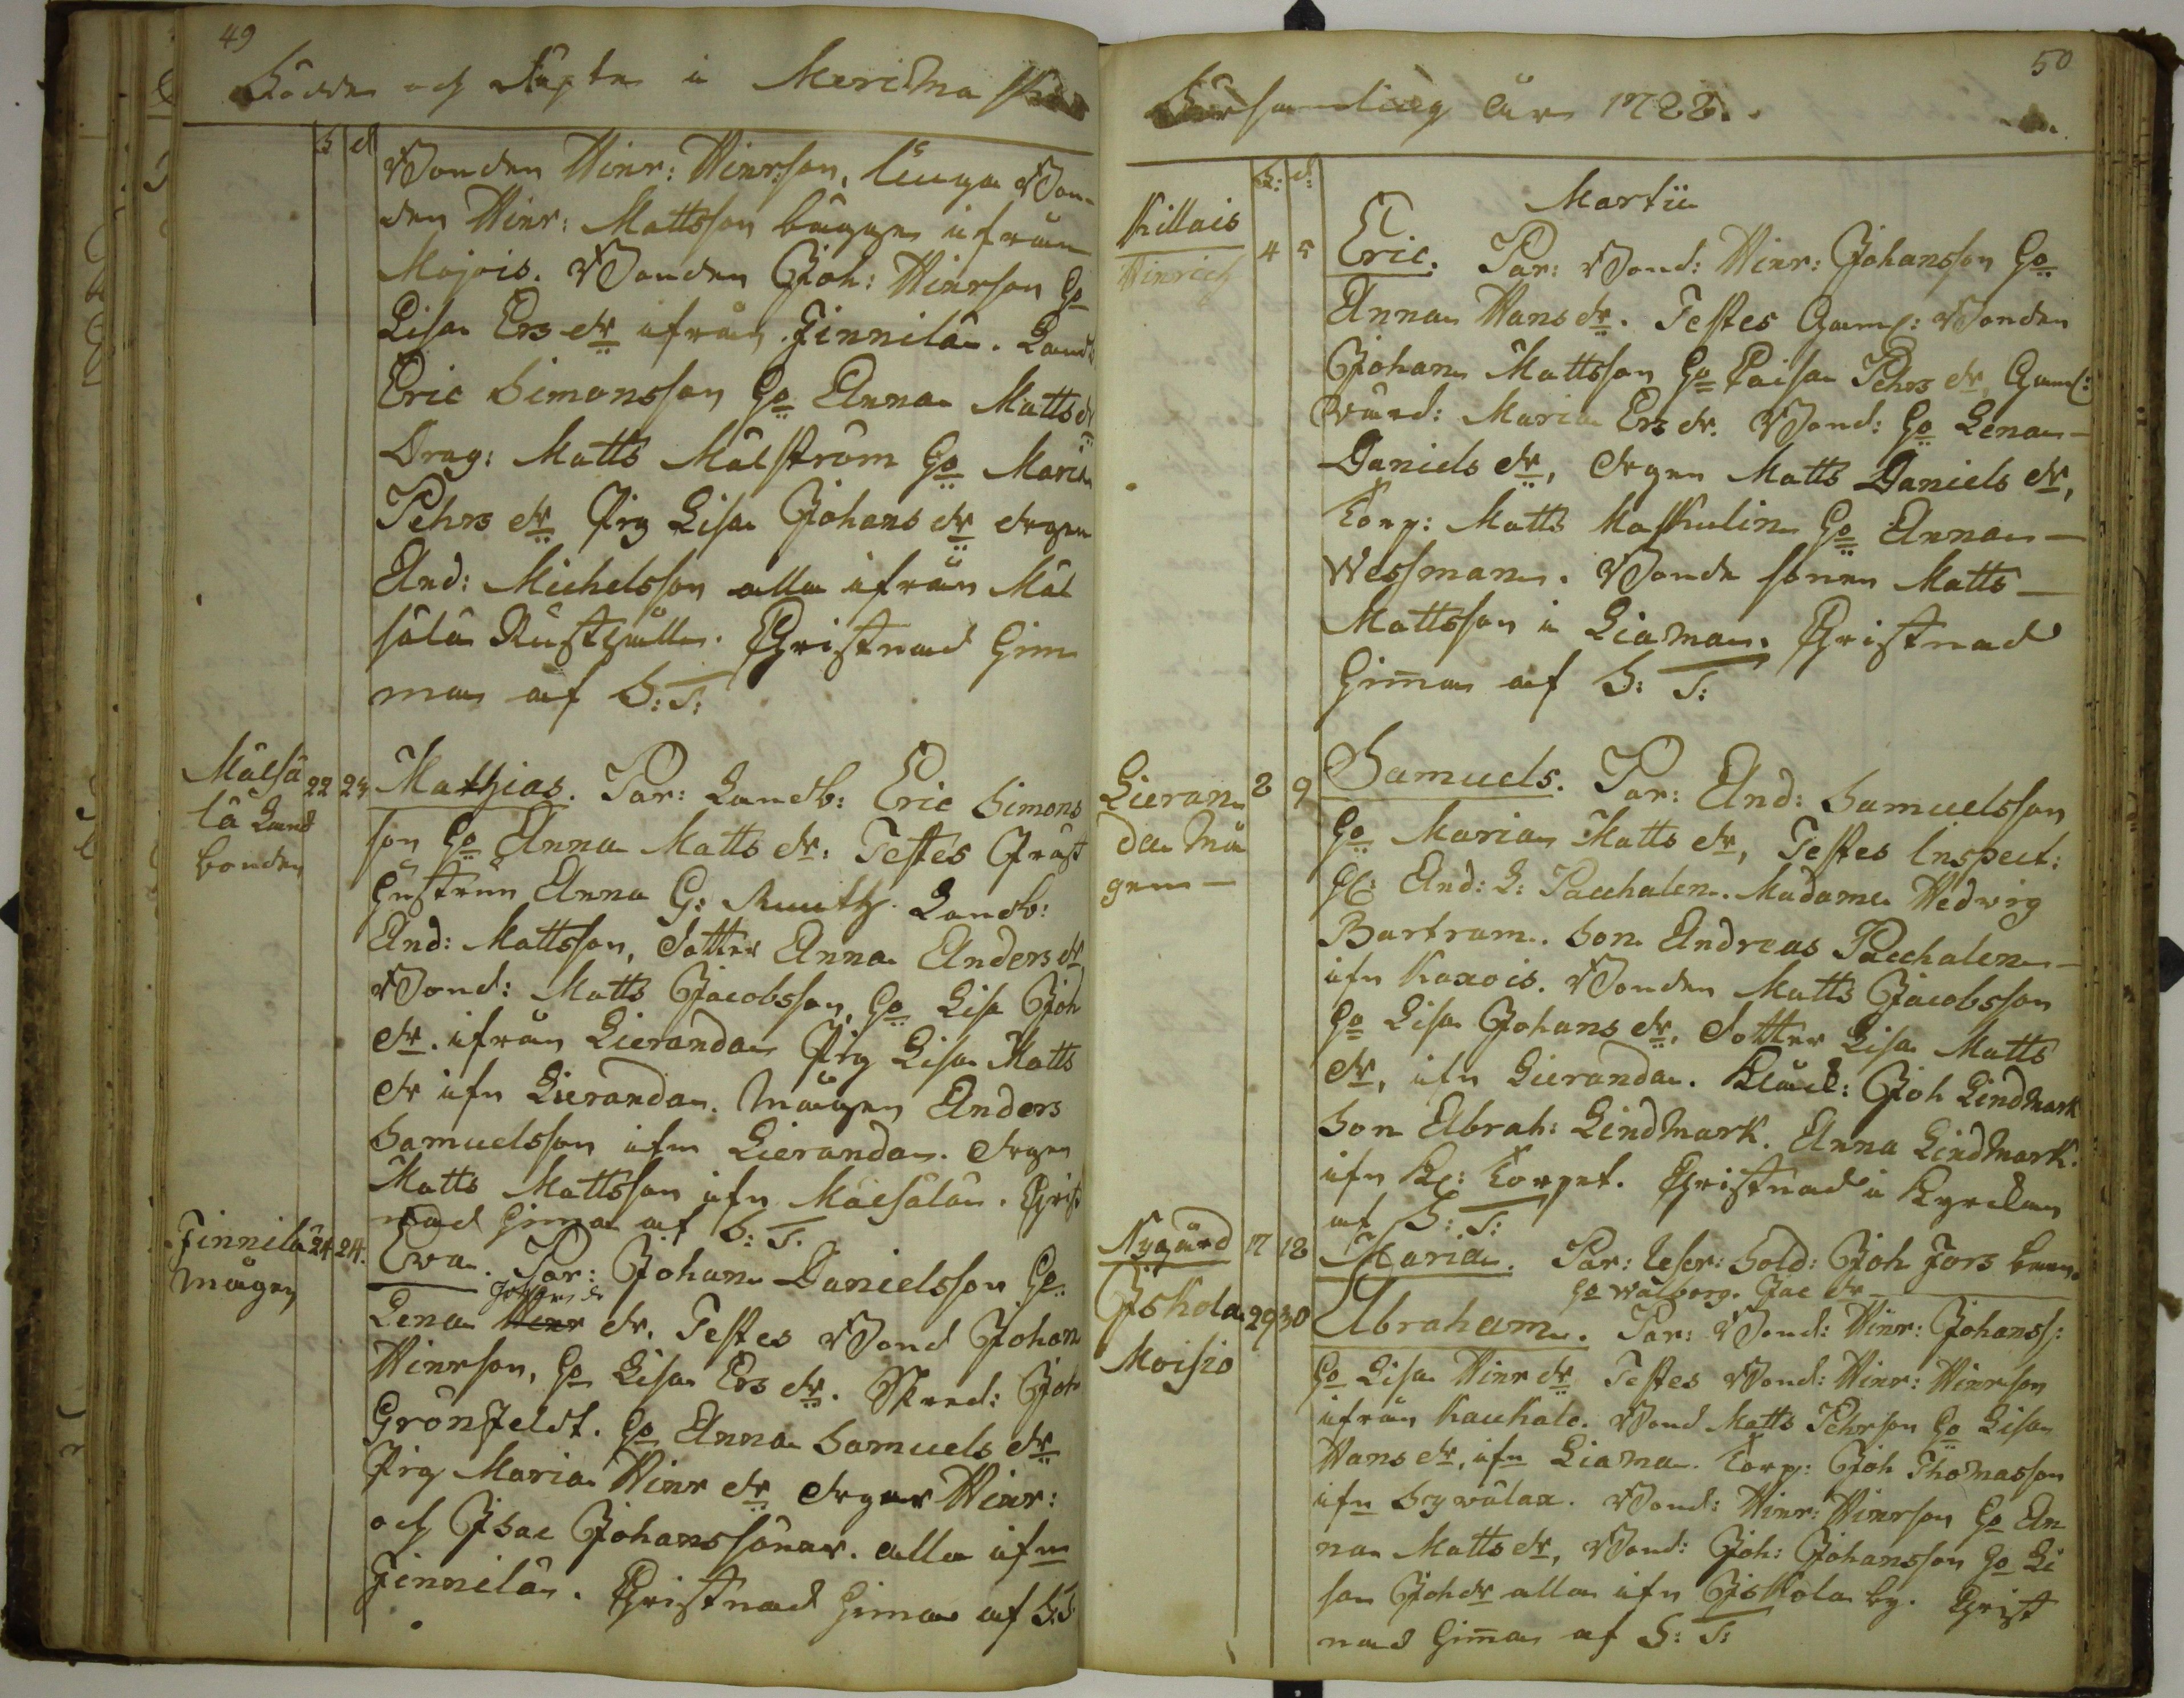 49
Födde och Döpte i Merimasku
F D
Bonden Hinr: Hinrsson, unga Bon-
den Hinr: Mattsson bägge ifrån
Mojois. Bonden Joh: Hinrsson Ho
Lisa Ersdr ifrån Finnilä. Landb
Eric Simonsson Ho Anna Mattsdr
Drag: Matts Målström Ho Maria
Pehrsdr Pig Lisa Johansdr drgn
And: Michelsson alla ifrån Mäl
sälä Rusthåll. Christnad Him
ma af S: T:
Mälsä
lä Land
bonden
22 23 Mathias. Par: Landb: Eric Simons
son Ho Anna Matts dr: Testes Prost
hustrun Anna G: Ruuth. Landb:
And: Mattsson, Dotter Anna Anders dr
Bond: Matts Jacobsson, Ho Lisa Joh
dr. ifrån Lieranda Pig Lisa Matts
dr ifn Lieranda. Mågen Anders
Samuelsson ifrn Lieranda. drgn
Matts Mattsson ifn Mälsälä. Christ
nad Hima af S: T.
Finnilä
mågen
24 24. Eva. Par: Johan Danielsson Ho
Johans dr
Lena Hinr dr. Testes Bond Johan
Hinrsson, Ho Lisa Ers dr. Skred: Joh
Grönfeldt. Ho Anna Samuels dr
Pig Maria Hinr dr drgar Hinr:
och Isac Johanssöner. alla ifrn
Finnilä. Christnad Hima af S:T:
50
Församling År 1788.
F: D:
Martii
Killais
Hinrich
4 5 Eric. Par: Bond: Hinr: Johansson Ho
Anna Hans dr. Testes Gaml: Bonden
Johan Mattsson Ho Caisa Pehrs dr, Gaml:
Värd: Maria Ers dr. Bond: Ho Lena
Daniels dr, drgn Matts Daniels dr,
Torp: Matts Maskulin Ho Anna
Wessman. Bonde sonen Matts
Mattsson i Liama. Christnad
Hima af S: T:
Lieran
da Må
gen
8 9 Samuels. Par: And: Samuelsson
Ho Maria Matts dr, Testes Inspect:
H: And: L: Pacchalen. Madame Hedvig
Bartram. Son Andreas Pacchalen
ifn Kaxois. Bonden Matts Jacobsson
Ho Lisa Johans dr. Dotter Lisa Matts
dr, ifn Lieranda. Klåck: Joh Lindmark
Son Abrah: Lindmark. Anna Lindmark.
ifn Kl: Torpet. Christnad i Kyrckan
af S: T:
Nygård 17 18 Maria. Par: Reser: Sold: Joh Fors
Ho Walborg. Jac dr
Iskola
Moisio
29 30 Abraham. Par: Bond: Hinr: Johanss:
Ho Lisa Hinr dr Testes Bond: Hinr: Hinrsson
ifrån Kaukale. Bond Matts Pehrson Ho Lisa
Hans dr, ifn Liama. Torp: Joh Thomasson
ifn Syvälax. Bond: Hinr: Hinrsson Ho An
na Matts dr, Bond: Joh: Johansson Ho Li
sa Joh dr alla ifn Iskola by. Christ
nad Hima af S: T: